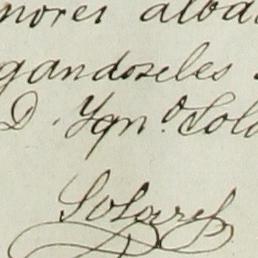 nores alba
gandoseles
D. Ygn.º Solo
Solares